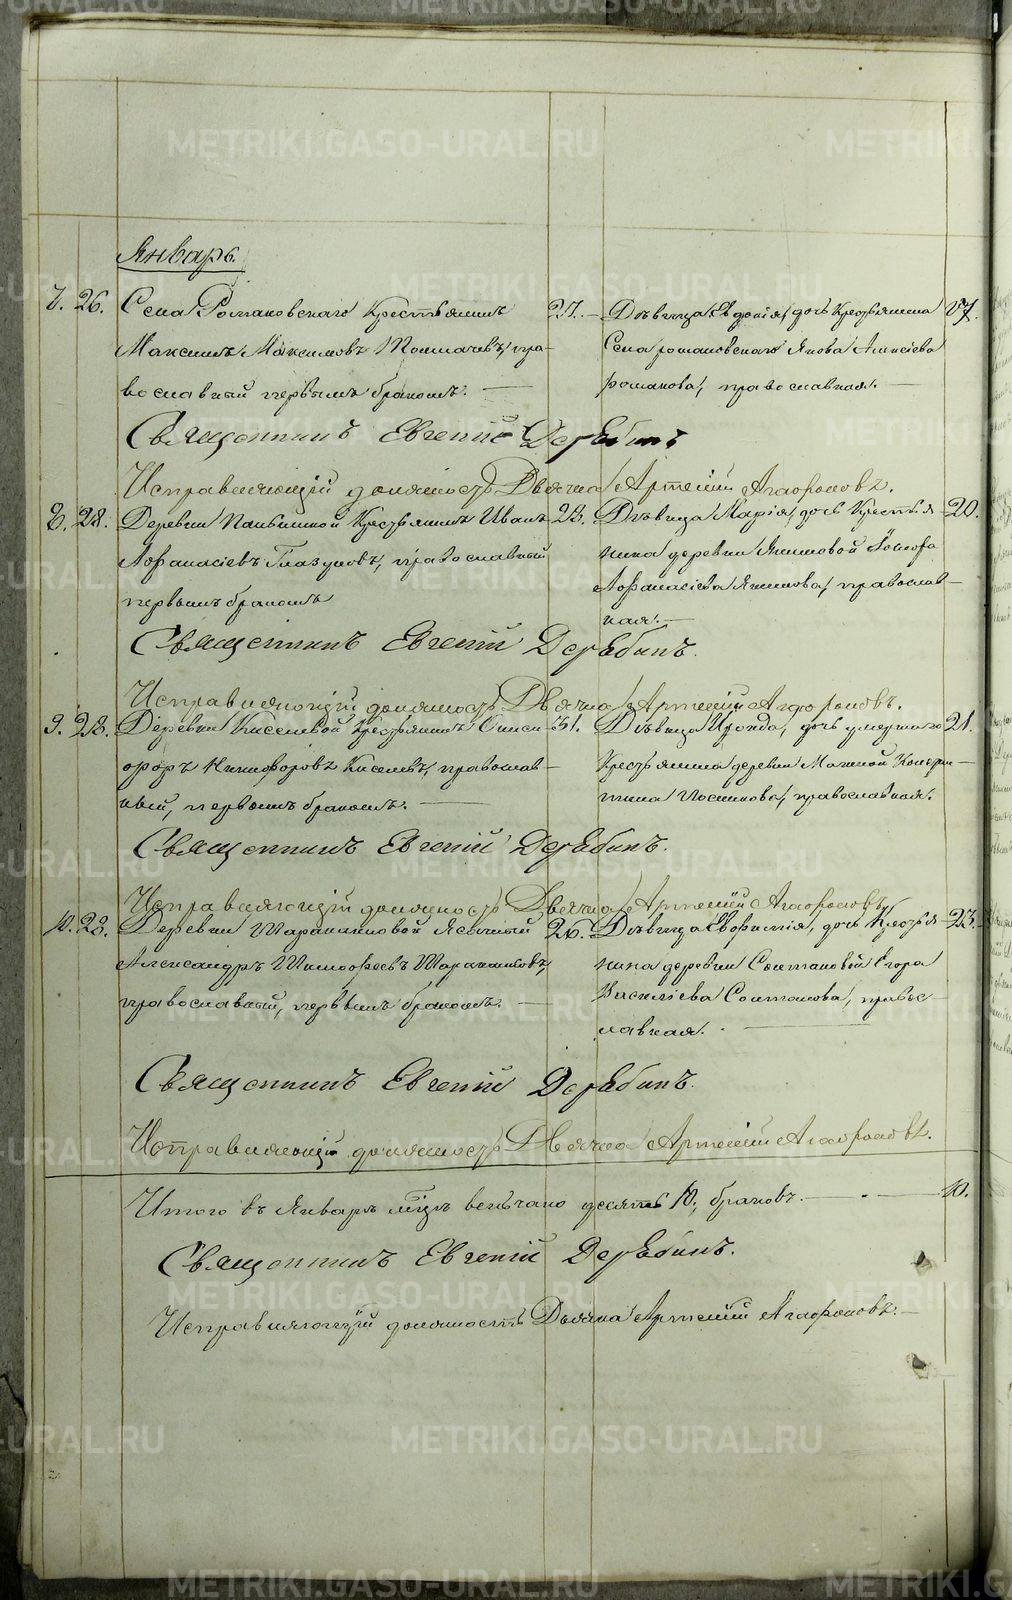 METRIKI.GASO-URAL.RU
Январь.
7. 26. Села Романовскаго Крестьянинъ
Максимъ Максимовъ Толмачевъ, пра-
вославный первымъ бракомъ.
27.
Дѣвица Евдокія, дочь Крестьянина
Села романовскаго Якова Алексѣева
романова, православная.
Священникъ Евгеній Дерябинъ
Исправляющій должность Дьячка Артемій Агафоновъ.
8. 28. Деревни Крестьянинъ Иванъ
Афанасіевъ Глазуновъ, православный
первымъ бракомъ
23.
Дѣвица Марія, дочь Крестья-
нина деревни Якимовой
Афанасіева Якимова, православ-
ная.
20.
Священникъ Евгеній Дерябинъ.
Исправляющій должность Дьячка Артемій Агафоновъ.
9. 28. Деревни Киселевой Крестьянинъ
Никифоровъ Киселевъ, православ-
ный, первымъ бракомъ.
31.
Дѣвица дочь умершаго
Крестьянина деревни
православная.
21.
Священникъ Евгеній Дерябинъ.
Исправляющій должность Дьячка Артемій Агафоновъ.
10. 28. Деревни Ясачный
Александръ Тимофеевъ
православный, первымъ бракомъ.
26.
Дѣвица Евфимія, дочь Крестья-
нина деревни Егора
Василіева православ-
лавная.
23.
Священникъ Евгеній Дерябинъ.
Исправляющій должность Дьячка Артемій Агафоновъ.
Итого въ Январѣ м-цѣ вѣнчано десять 10, браковъ. 10.
Священникъ Евгеній Дерябинъ.
Исправляющій должность Дьячка Артемій Агафоновъ.